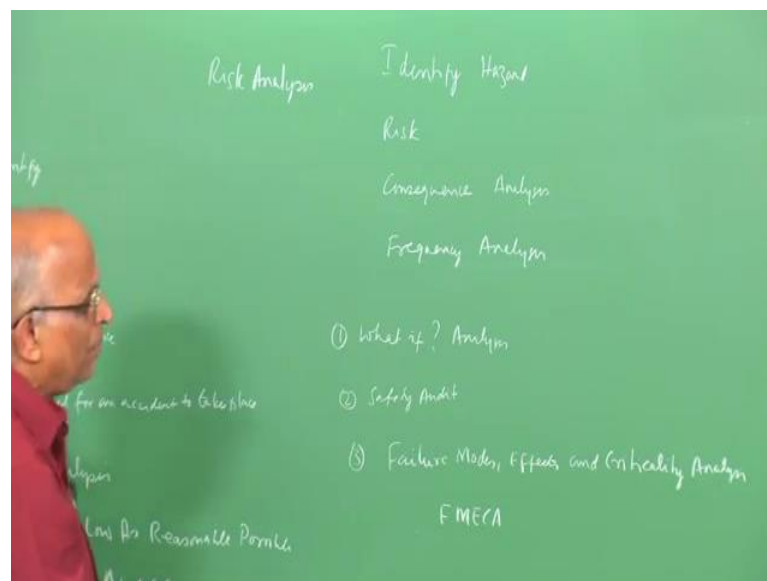 Risk Analysis
Identify Hazard
Risk
Consequence Analysis
Frequency Analysis
① What if? Analysis
② Safety Audit
③ Failure Modes, Effects and Criticality Analysis
FMECA
for an accident to take place
Low As Reasonable Possible